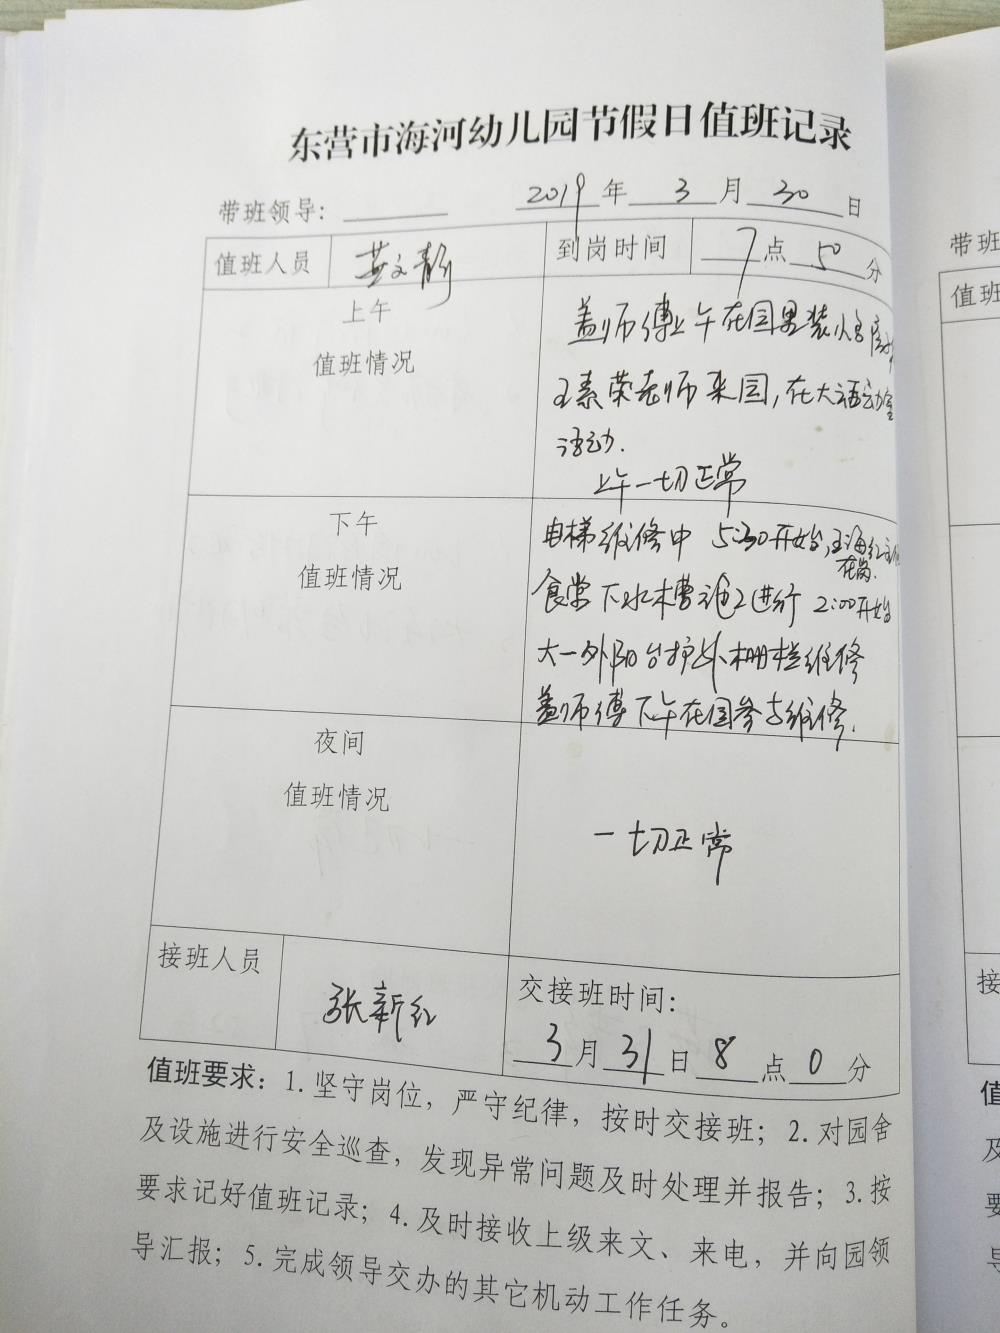 东营市海河幼儿园节假日值班记录
带班领导： 2019年 3月 30日
值班人员 文静 到岗时间 7点 50分
上午
值班情况
盖师傅上午在园里装
王素荣老师来园，在大活动室
活动.
上午一切正常
下午
值班情况
电梯维修中 5:30开始,王海红
在岗.
食堂下水槽施工进行 2:00开始
大一外阳台护外栅栏维修
盖师傅下午在园参与维修.
夜间
值班情况
一切正常
接班人员 张新红 交接班时间：
3月 31日 8点 0分
值班要求：1.坚守岗位，严守纪律，按时交接班；2.对园舍
及设施进行安全巡查，发现异常问题及时处理并报告；3.按
要求记好值班记录；4.及时接收上级来文、来电，并向园领
导汇报；5.完成领导交办的其它机动工作任务。
带班
值班
接
值
及
要
导